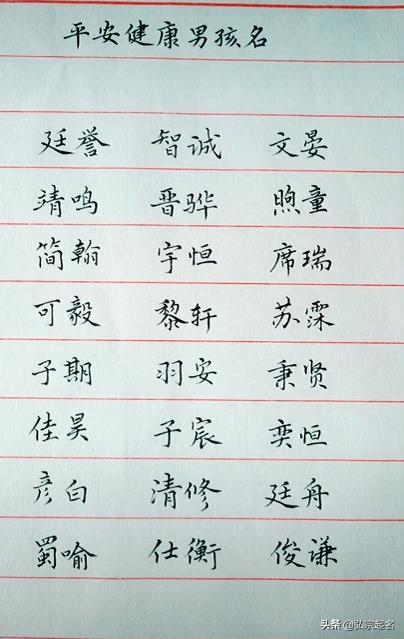 平安健康男孩名
廷誉 智诚 文晏
靖鸣 晋骅 煦童
简翰 宇恒 席瑞
可毅 黎轩 苏霂
子期 羽安 秉贤
佳昊 子宸 奕恒
彦白 清修 廷舟
蜀喻 仕衡 俊谦
头条 @弘宗起名